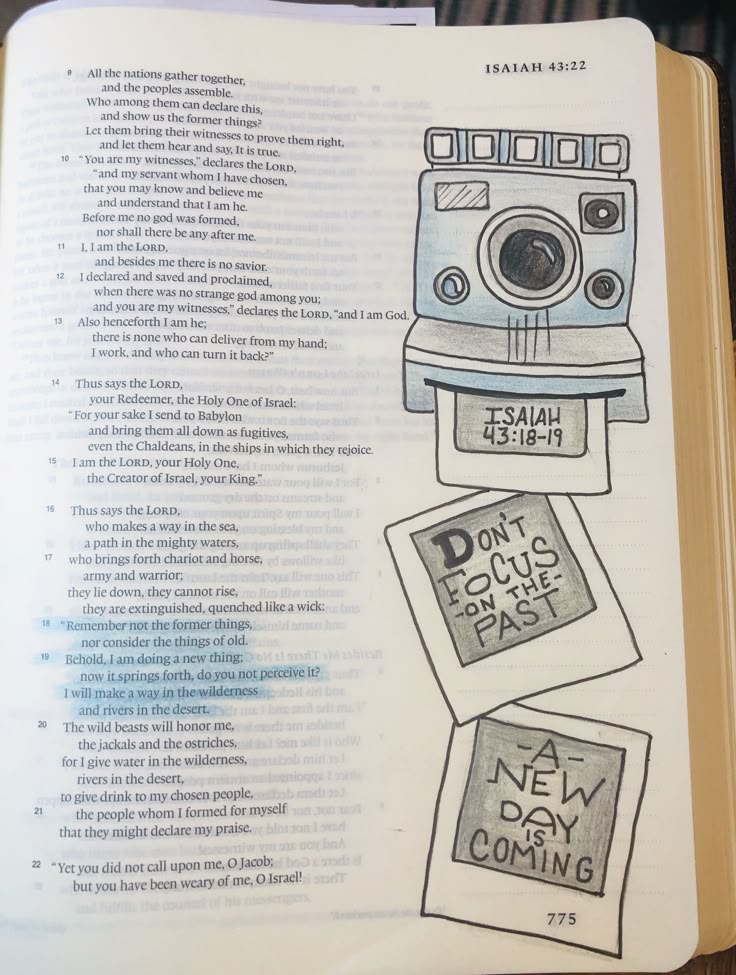 ISAIAH 43:22
9 All the nations gather together,
and the peoples assemble.
Who among them can declare this,
and show us the former things?
Let them bring their witnesses to prove them right,
and let them hear and say, It is true.
10 “You are my witnesses,” declares the LORD,
“and my servant whom I have chosen,
that you may know and believe me
and understand that I am he.
Before me no god was formed,
nor shall there be any after me.
11 I, I am the LORD,
and besides me there is no savior.
12 I declared and saved and proclaimed,
when there was no strange god among you;
and you are my witnesses,” declares the LORD, “and I am God.
13 Also henceforth I am he;
there is none who can deliver from my hand;
I work, and who can turn it back?”
14 Thus says the LORD,
your Redeemer, the Holy One of Israel:
“For your sake I send to Babylon
and bring them all down as fugitives,
even the Chaldeans, in the ships in which they rejoice.
15 I am the LORD, your Holy One,
the Creator of Israel, your King.”
16 Thus says the LORD,
who makes a way in the sea,
a path in the mighty waters,
17 who brings forth chariot and horse,
army and warrior;
they lie down, they cannot rise,
they are extinguished, quenched like a wick:
18 “Remember not the former things,
nor consider the things of old.
19 Behold, I am doing a new thing;
now it springs forth, do you not perceive it?
I will make a way in the wilderness
and rivers in the desert.
20 The wild beasts will honor me,
the jackals and the ostriches,
for I give water in the wilderness,
rivers in the desert,
to give drink to my chosen people,
21 the people whom I formed for myself
that they might declare my praise.
22 “Yet you did not call upon me, O Jacob;
but you have been weary of me, O Israel!
ISAIAH
43:18-19
DON'T
FOCUS
-ON THE-
PAST
-A-
NEW
DAY
IS
COMING
775